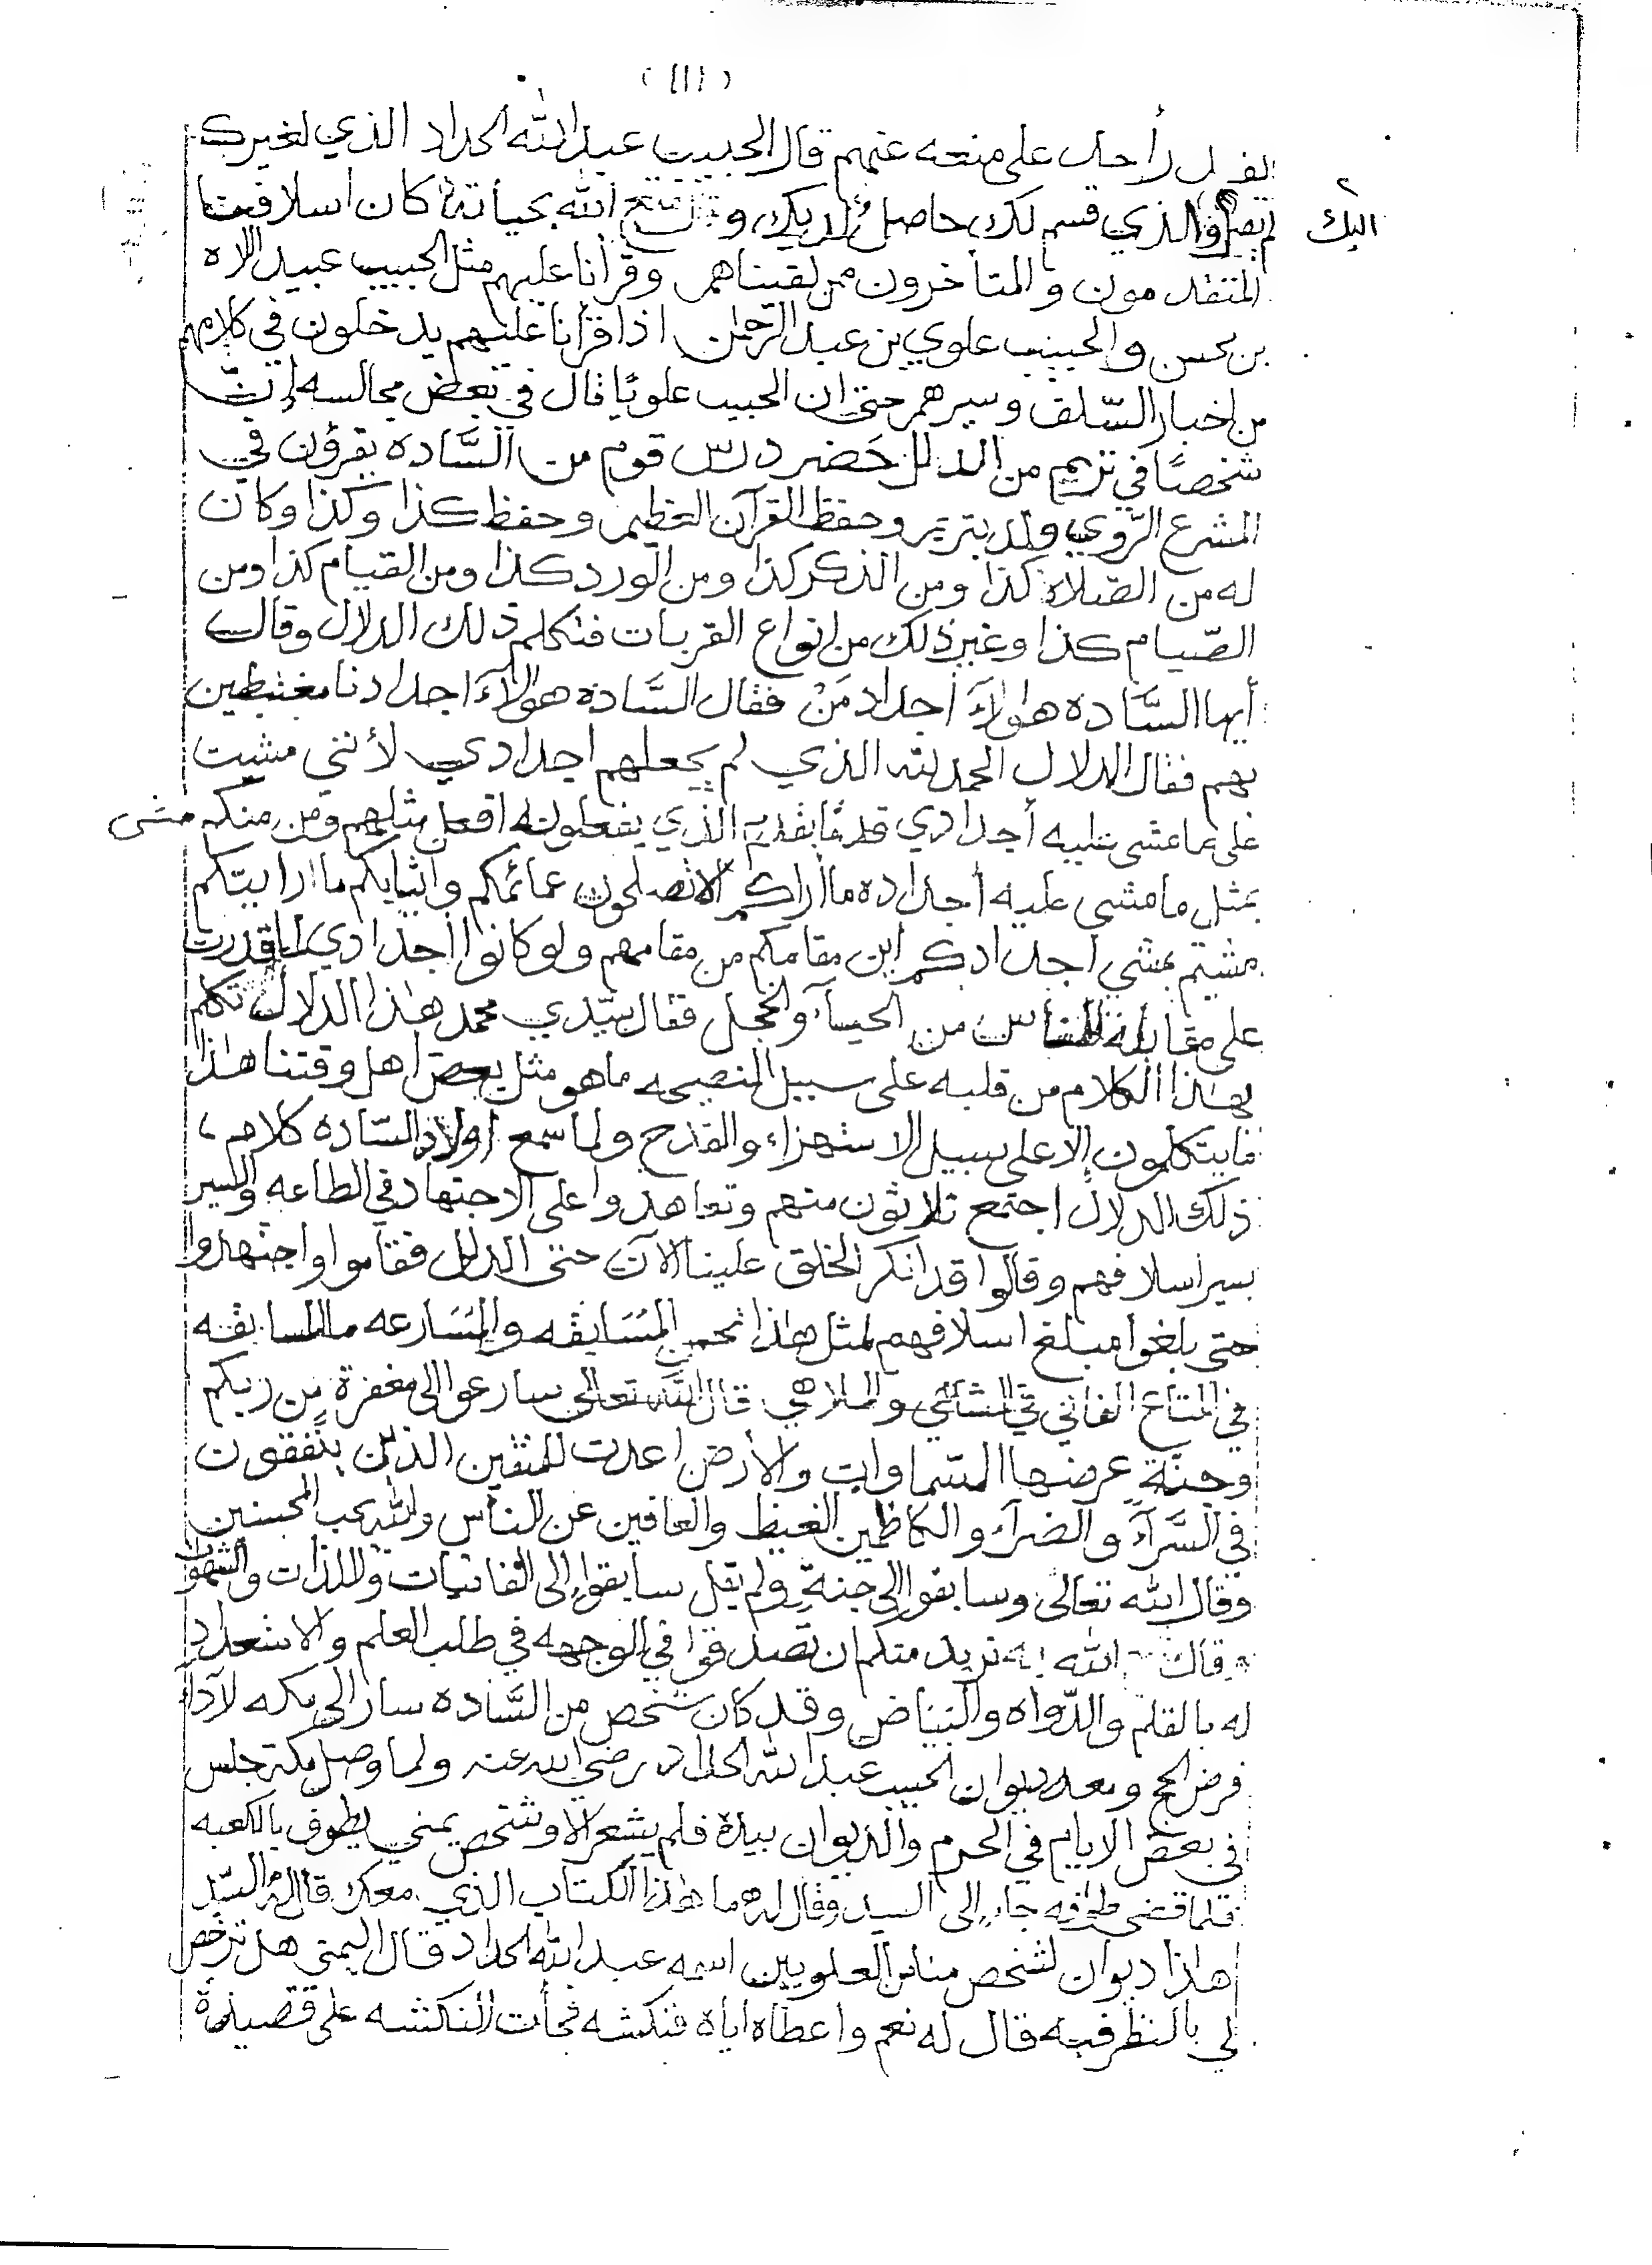 (١١١)
أحد على منعه عنهم قال الحبيب عبد الله الحداد الذي لغيرك
لم يصل إليك والذي قسم لك حاصل لديك الله بحياته كان اسلافنا
المتقدمون والمتأخرون ممن لقيناهم وقرأنا عليهم مثل الحبيب عبيد اللاه
بن محسن والحبيب علوي بن عبد الرحمن اذا قرأنا عليهم يدخلون في كلامهم
من اخبار السّلف وسيرهم حتى ان الحبيب علويًا قال في بعض مجالسه إنّ
شخصًا في تريم من الدلل حَضر درس قوم من السَّاده يقرؤن في
المشرع الرّوي ولد بتريم وحفظ القرآن العظيم وحفظ كذا وكذا وكان
له من الصّلاة كذا ومن الذكر كذا ومن الورد كذا ومن القيام كذا ومن
الصّيام كذا وغير ذلك من انواع القربات فتكلم ذلك الدلال وقال
أيها السَّاده هاؤلآء أجداد مَنْ فقال السَّادة هؤلآء اجدادنا مغتبطين
بهم فقال الدلال الحمد لله الذي لم يجعلهم اجدادي لأنني مشيت
على ما مشى عليه أجدادي قدمًا بقدم الذي يفعلونه افعل مثلهم ومن منكم مشى
بمثل ما مشى عليه أجداده ما أراكم الا تصلحون عمائمكم واثيابكم ما ارايتكم
مشيتم بمشي اجدادكم اين مقامكم من مقامهم ولو كانوا اجدادي لما قدرت
على مقابلة الناس من الحيآء والخجل فقال سيّدي محمد هذا الدلال تكلم
بهذا الكلام من قلبه على سبيل النصيحه ما هو مثل بعض اهل وقتنا هذا
ما يتكلمون إلا على سبيل الاستهزاء والقدح ولما سمع أولاد السّاده كلام
ذلك الدلال اجتمع ثلاثون منهم وتعاهدوا على الاجتهاد في الطاعه والسير
بسير اسلافهم وقالوا قد انكر الخلق علينا الآن حتى الدلل فقاموا واجتهدوا
حتى بلغوا مبلغ اسلافهم لمثل هذا تحسن المُسَابقه والمُسَارعه ما المسابقه
في المتاع الفاني والملاهي قال الله تعالى سارعوا إلى مغفرة من ربكم
وجنّةٍ عرضها السّماوات والأرض اعدت للمتقين الذين ينفقون
في السَّرآء والضرآء والكاظمين الغيظ والعافين عن الناس والله يحب المحسنين
وقال الله تعالى وسابقوا إلى جنةٍ ولم يقل سابقوا إلى الفانيات واللذات والشهوات
الله به نريد منكم ان تصدقوا في الوجهه في طلب العلم والاستعداد
له بالقلم والدّواه والبياض وقد كان شخص من السَّاده سار إلى مكه لآدآء
فرض الحج ومعه ديوان الحبيب عبد الله الحداد رضي الله عنه ولما وصل مكة جلس
في بعض الايام في الحرم والديوان بيده فلم يشعر الا وشخص يمني يطوف بالكعبه
فلما قضى طوافه جاء إلى السيد وقال له ما هذا الكتاب الذي معك قال له السيّد
هاذا ديوان لشخص منا من العلويين اسمه عبد الله الحداد قال اليمني هل ترخص
لي بالنظر فيه قال له نعم واعطاه اياه فنكشه فجأت النكشه على قصيدة